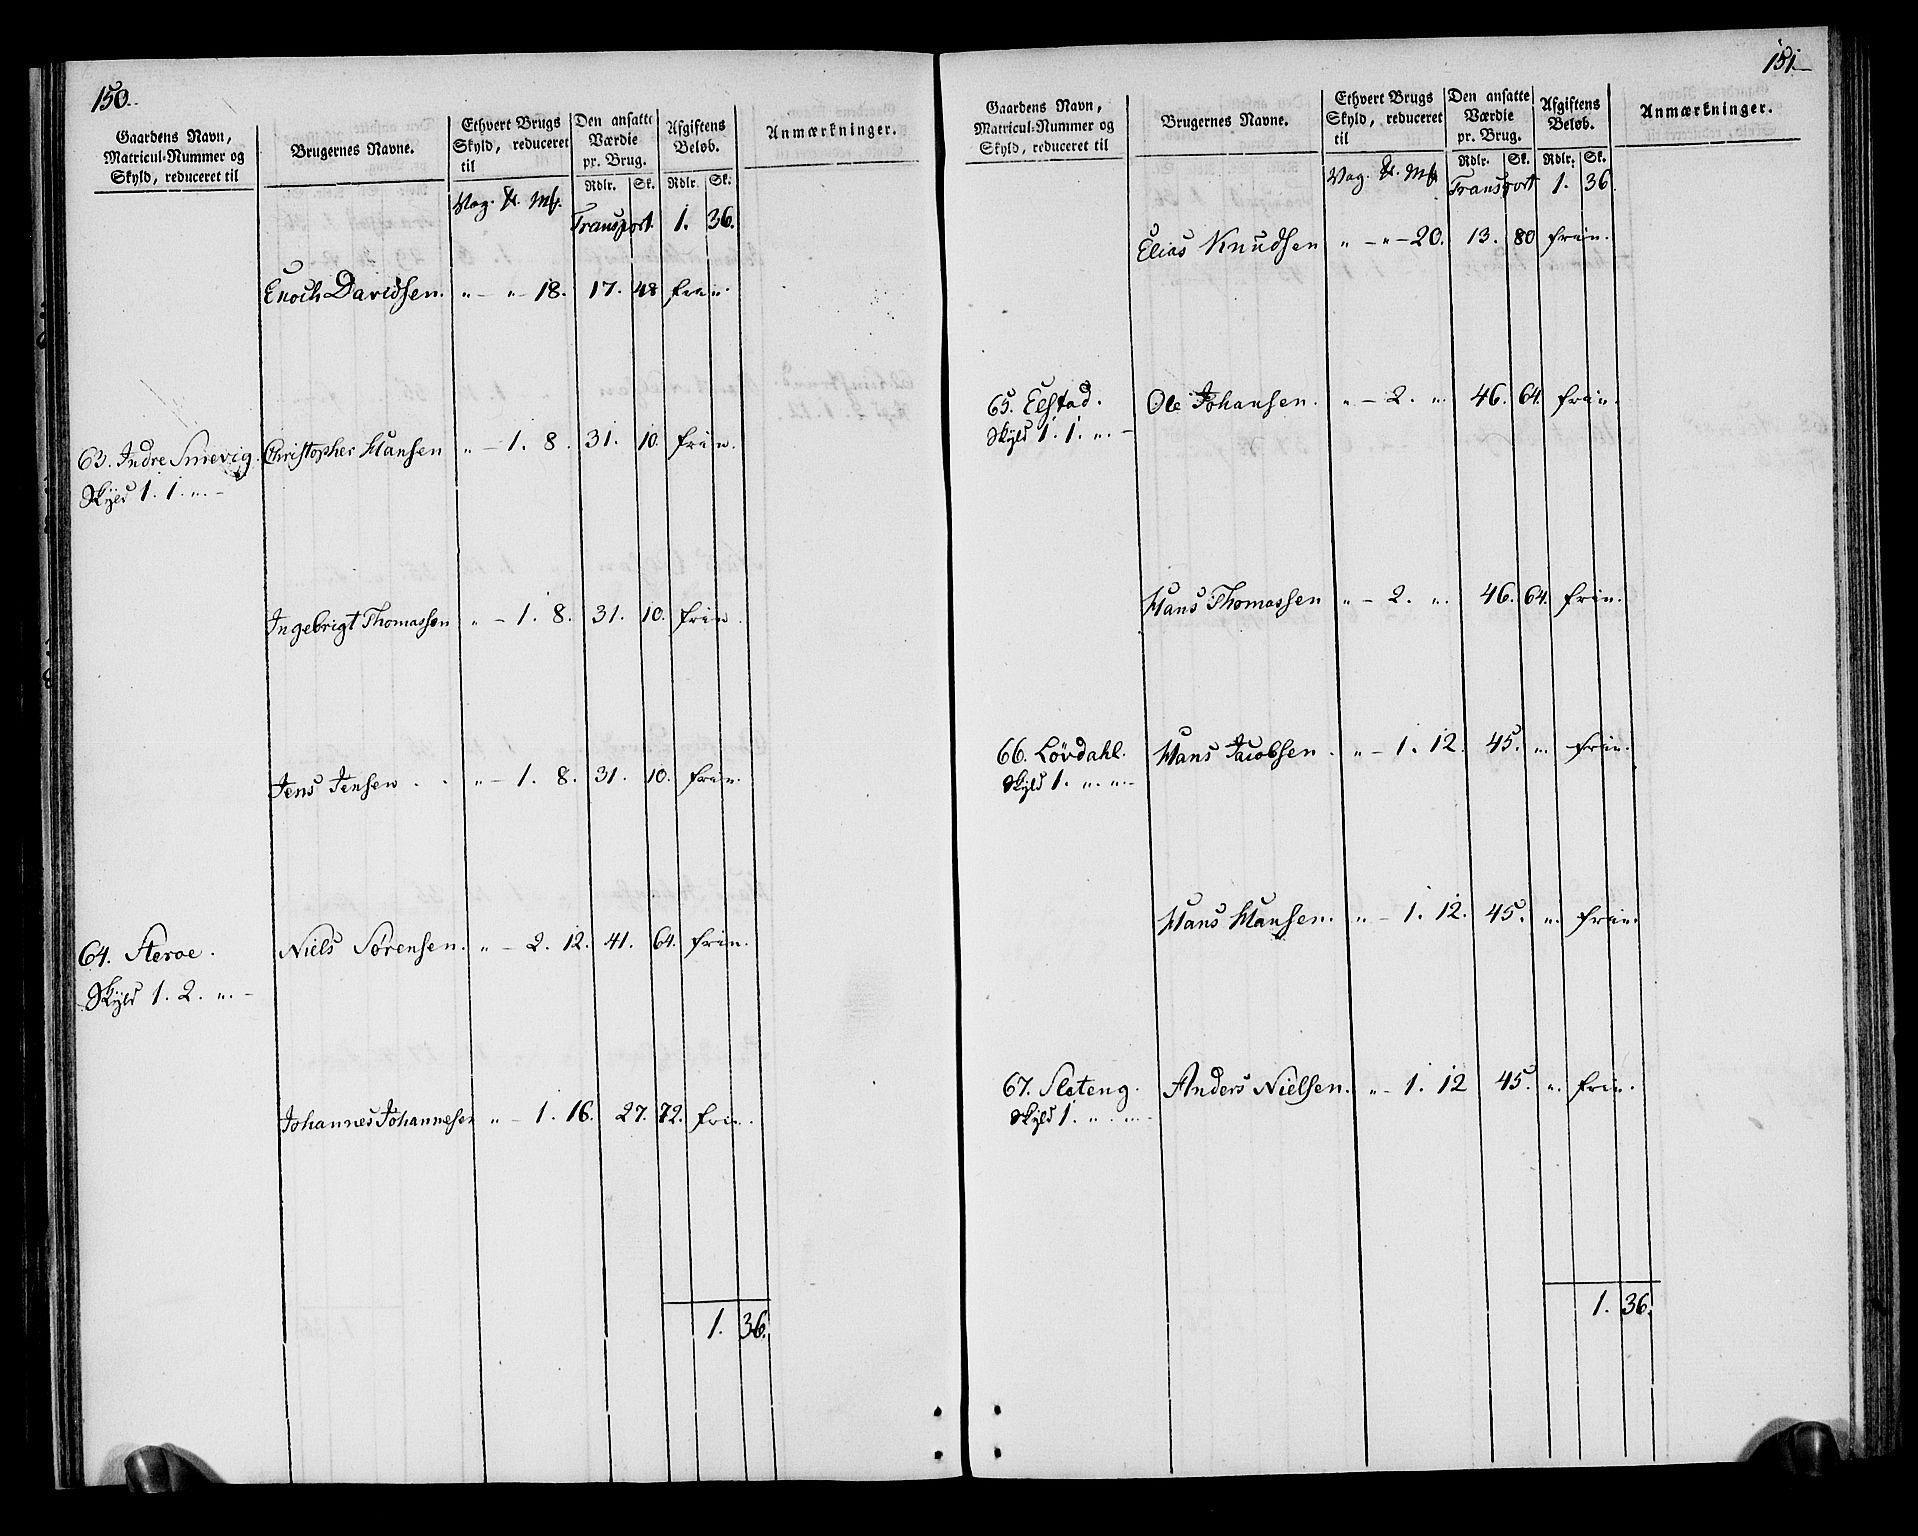 150.
Gaardens Navn, Matricul-Nummer og Skyld, reduceret til | Brugernes Navne. | Ethvert Brugs Skyld, reduceret til | Den ansatte Værdie pr. Brug. | Afgiftens Beløb. | Anmærkninger.
Vog. ℔. Mk. | Rdlr. | Sk. | Rdlr. | Sk.
Transport. 1. 36.
Enoch Davidsen. „ – „ – 18. 17. 48 frie.
63. Indre Smevig. Christopher Hansen „ – 1. 8. 31. 10. frie.
Skyld 1. 1. „. –
Ingebrigt Thomassen „ – 1. 8. 31. 10. frie.
Jens Jensen . . „ – 1. 8. 31. 10. frie.
64. Steroe. Niels Sørensen. „ – 2. 12. 41. 64. frie.
Skyld 1. 2. „. –
Johannes Johannesen „ – 1. 16. 27. 72. frie.
1. 36.
151. –
Gaardens Navn, Matricul-Nummer og Skyld, reduceret til | Brugernes Navne. | Ethvert Brugs Skyld, reduceret til | Den ansatte Værdie pr. Brug. | Afgiftens Beløb. | Anmærkninger.
Vog. ℔. Mk. | Rdlr. | Sk. | Rdlr. | Sk.
Transport 1. 36.
Elias Knudsen „ – „ – 20. 13. 80 frie.
65. Elstad. Ole Johansen. „ – 2. „. 46. 64. frie.
Skyld 1. 1. „. –
Hans Thomassen „ – 2. „. 46. 64. frie.
66. Lövdahl. Hans Jacobsen. „ – 1. 12. 45. „. frie.
Skyld 1. „. „. –
Hans Hansen. „ – 1. 12. 45. „. frie.
67. Sleteng. Anders Nielsen. „ – 1. 12 45. „. frie.
Skyld 1. „. „. –
1. 36.